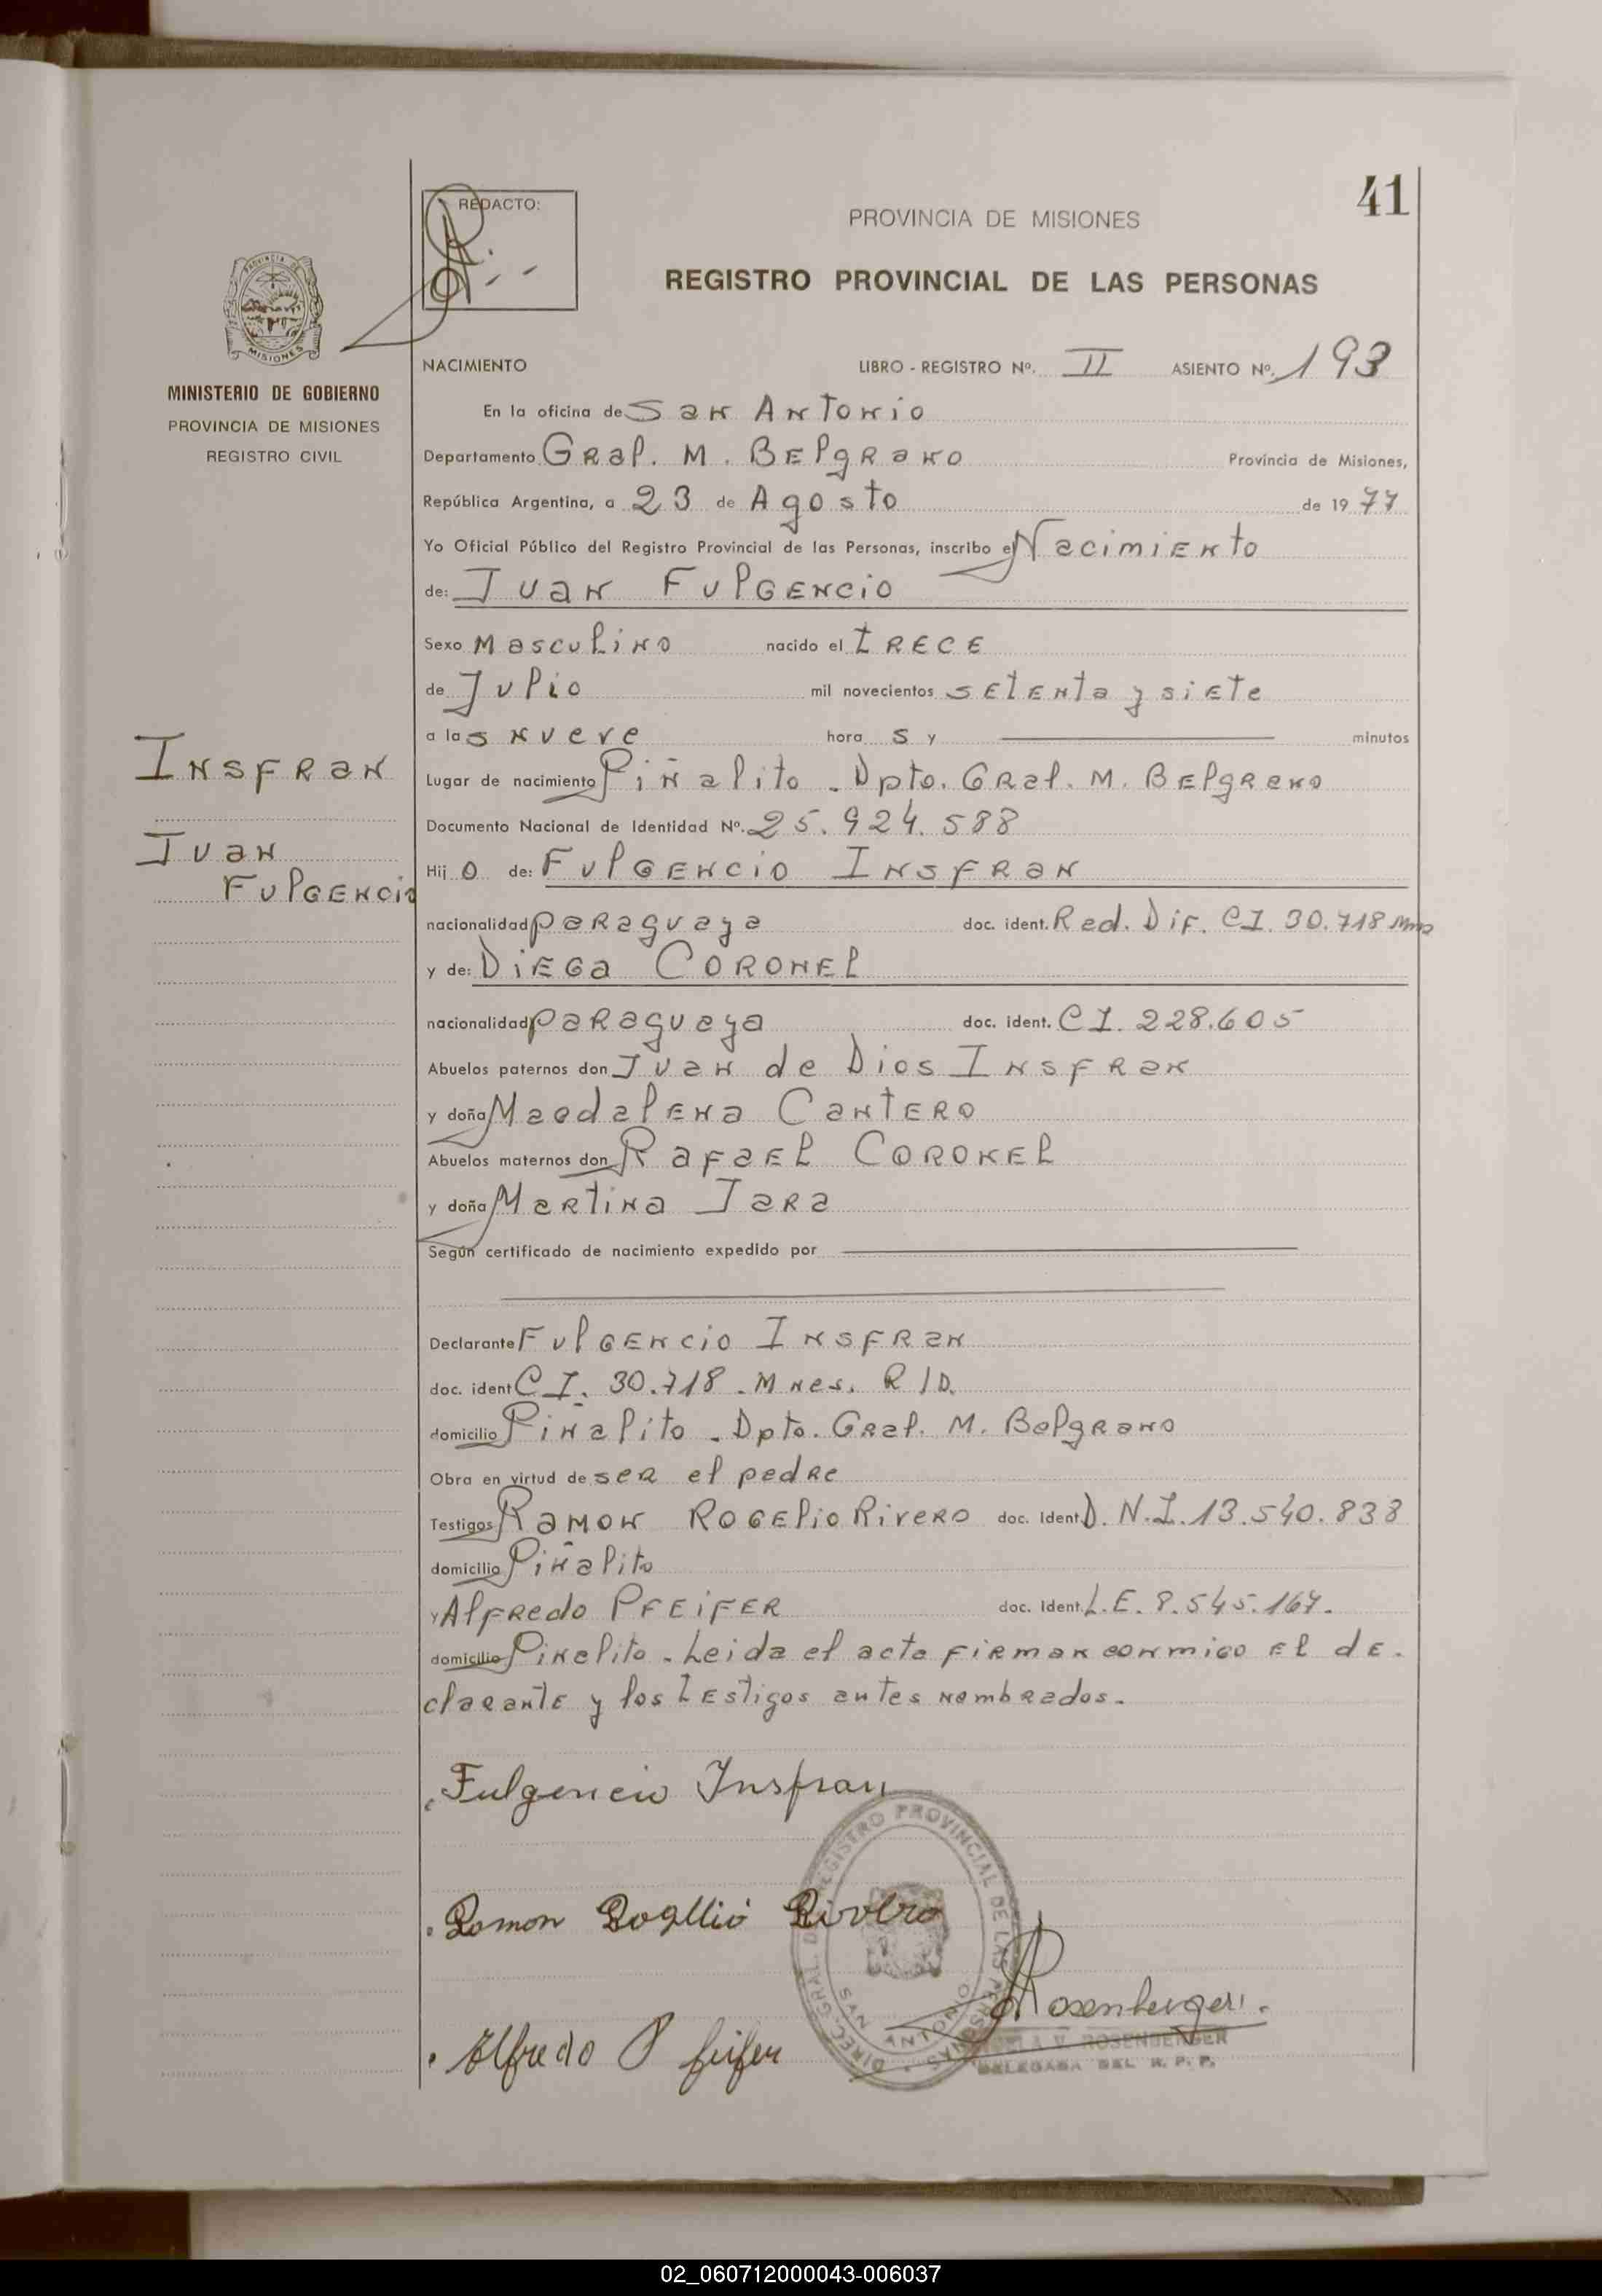 41
REDACTO:
PROVINCIA DE MISIONES
REGISTRO PROVINCIAL DE LAS PERSONAS
PROVINCIA DE
MISIONES
MINISTERIO DE GOBIERNO
PROVINCIA DE MISIONES
REGISTRO CIVIL
NACIMIENTO LIBRO - REGISTRO Nº. II ASIENTO Nº. 193
En la oficina de San Antonio
Departamento Gral. M. Belgrano Provincia de Misiones,
República Argentina, a 23 de Agosto de 1977
Yo Oficial Público del Registro Provincial de las Personas, inscribo el Nacimiento
de: Juan Fulgencio
Sexo Masculino nacido el trece
de Julio mil novecientos setenta y siete
a las nueve horas y minutos
Insfran
Lugar de nacimiento Piñalito - Dpto. Gral. M. Belgrano
Documento Nacional de Identidad Nº. 25.924.588
Juan
Fulgencio
Hijo de: Fulgencio Insfran
nacionalidad paraguaya doc. ident. Red. Dif. CI. 30.718 Mnes
y de: Diega Coronel
nacionalidad paraguaya doc. ident. CI. 228.605
Abuelos paternos don Juan de Dios Insfran
y doña Magdalena Cantero
Abuelos maternos don Rafael Coronel
y doña Martina Jara
Según certificado de nacimiento expedido por
Declarante Fulgencio Insfran
doc. ident CI. 30.718 - Mnes. R/D.
domicilio Piñalito - Dpto. Gral. M. Belgrano
Obra en virtud de ser el padre
Testigos Ramon Rogelio Rivero doc. ident. D.N.I. 13.540.833
domicilio Piñalito
y Alfredo Pfeifer doc. ident. L.E. 8.545.167.
domicilio Piñalito - Leida el acta firman conmigo el de-
clarante y los testigos antes nombrados-
Fulgencio Insfran
Ramon Rogelio Rivero
DIREC. GRAL. DEL REGISTRO PROVINCIAL DE LAS PERSONAS
SAN ANTONIO
Rosenberger.
V. ROSENBERGER
DELEGADA DEL R. P. P.
Alfredo Pfeifer
02_060712000043-006037